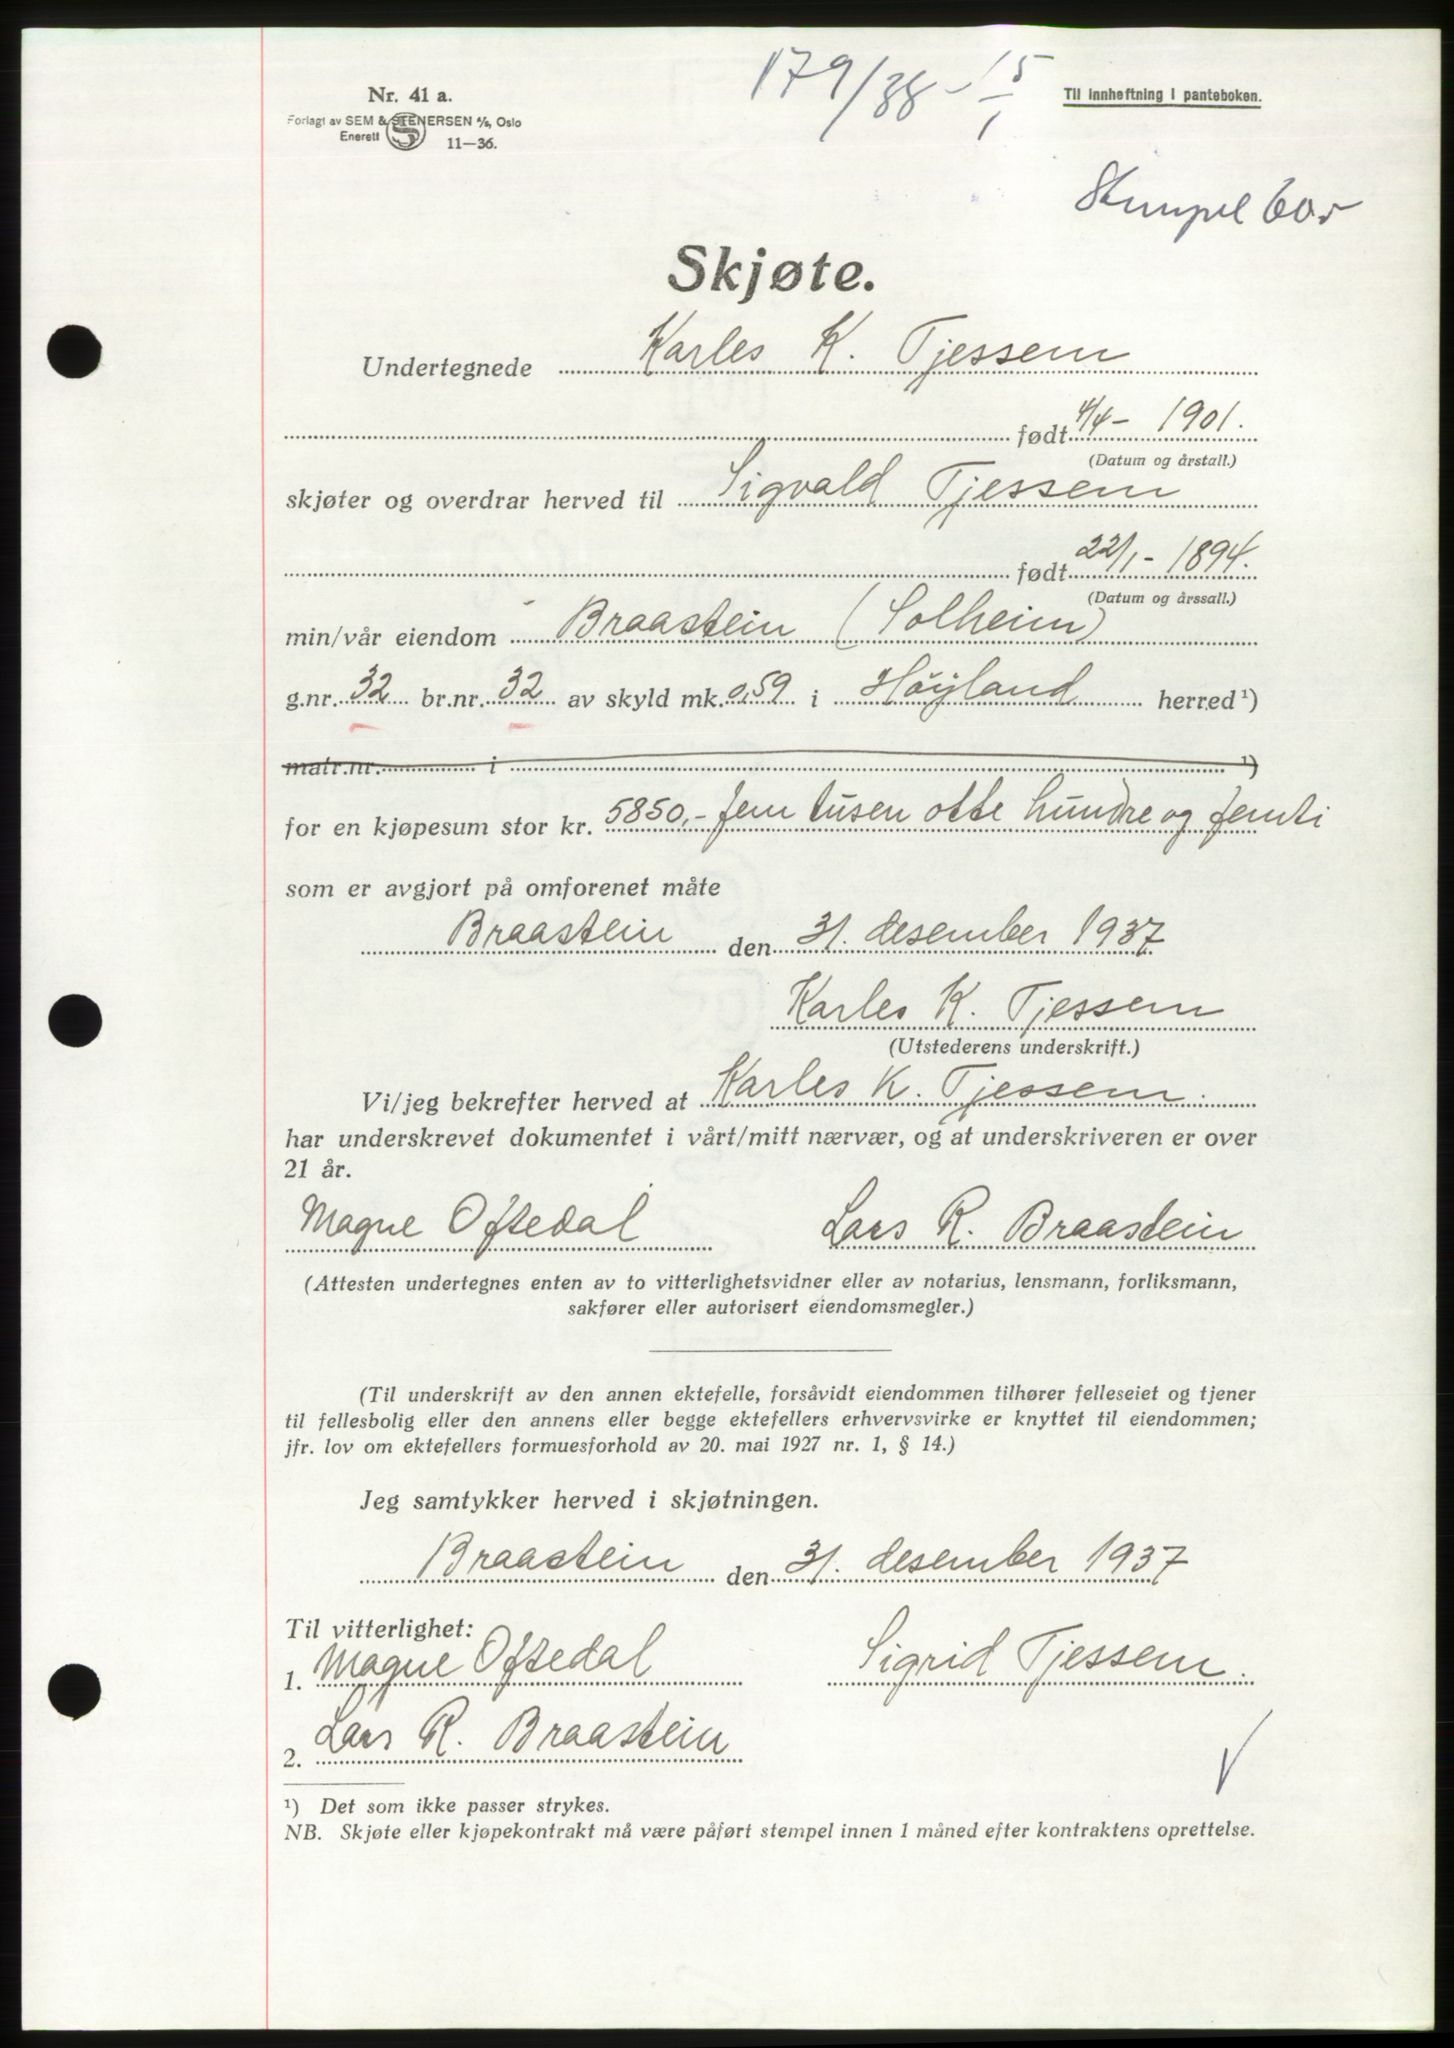 179/38 - 15/1
Nr. 41 a.
Til innheftning i panteboken.
Forlagt av SEM & STENERSEN A/S, Oslo
Enerett S 11—36.
Stempel 60,-
Skjøte.
Undertegnede Karles K. Tjessem
født 4/4 - 1901.
(Datum og årstall.)
skjøter og overdrar herved til Sigvald Tjessem
født 22/1 - 1894.
(Datum og årssall.)
min/vår eiendom Braastein (Solheim)
g.nr. 32 br.nr. 32 av skyld mk. 0,59 i Høyland herred ¹)
matr.nr. i ¹)
for en kjøpesum stor kr. 5850,- fem tusen otte hundre og femti
som er avgjort på omforenet måte
Braastein den 31. desember 1937
Karles K. Tjessem
(Utstederens underskrift.)
Vi/jeg bekrefter herved at Karles K. Tjessem.
har underskrevet dokumentet i vårt/mitt nærvær, og at underskriveren er over
21 år.
Magne Oftedal Lars R. Braastein
(Attesten undertegnes enten av to vitterlighetsvidner eller av notarius, lensmann, forliksmann,
sakfører eller autorisert eiendomsmegler.)
(Til underskrift av den annen ektefelle, forsåvidt eiendommen tilhører felleseiet og tjener
til fellesbolig eller den annens eller begge ektefellers erhvervsvirke er knyttet til eiendommen;
jfr. lov om ektefellers formuesforhold av 20. mai 1927 nr. 1, § 14.)
Jeg samtykker herved i skjøtningen.
Braastein den 31. desember 1937
Til vitterlighet:
1. Magne Oftedal Sigrid Tjessem.
2. Lars R. Braastein
¹) Det som ikke passer strykes.
NB. Skjøte eller kjøpekontrakt må være påført stempel innen 1 måned efter kontraktens oprettelse.